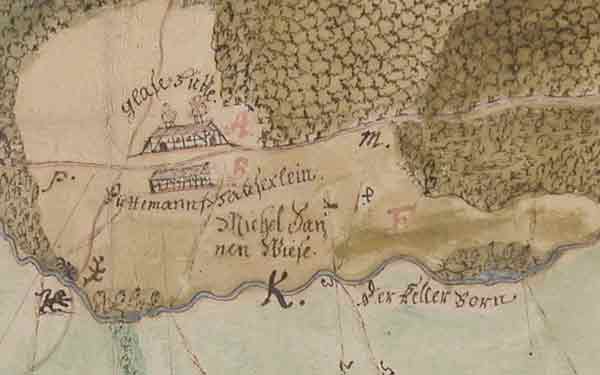 Glase Hütte.
A
B
m.
P.
Hüttemanns Häuserlein.
Michel Tan
nen Wiese.
F
K.
Der Keller Born